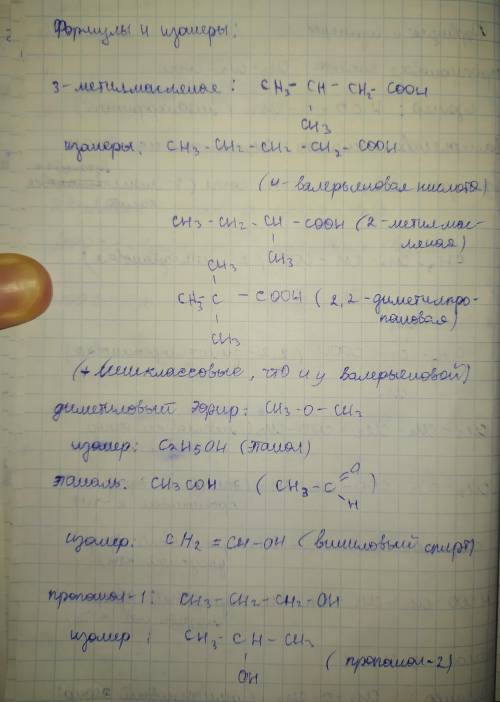 Формулы и изомеры:
3-метилмасленая: CH3-CH-CH2-COOH
CH3
изомеры: CH3-CH2-CH2-CH2-COOH
(н-валерьяновая кислота)
CH3-CH2-CH-COOH (2-метилмас-
CH3 леная)
CH3
CH3-C-COOH (2,2-диметилпро-
CH3 пановая)
(+ межклассовые, что и у валерьяновой)
диметиловый эфир: CH3-O-CH3
изомер: C2H5OH (этанол)
этаналь: CH3COH (CH3-C=O
H)
изомер: CH2=CH-OH (виниловый спирт)
пропанол-1: CH3-CH2-CH2-OH
изомер: CH3-CH-CH3
OH (пропанол-2)